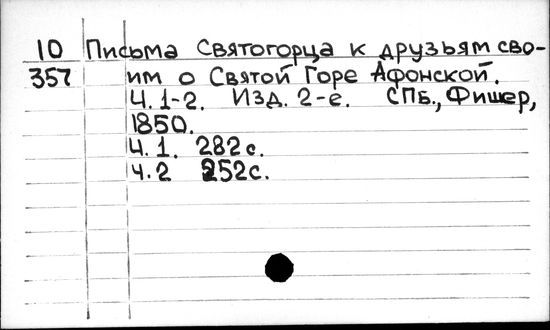 10 Письма Святогорца к друзьям сво-
357 им о Святой Горе Афонской.
Ч. 1-2. Изд. 2-е. СПб., Фишер,
1850.
Ч. 1. 282 с.
Ч. 2 252 с.